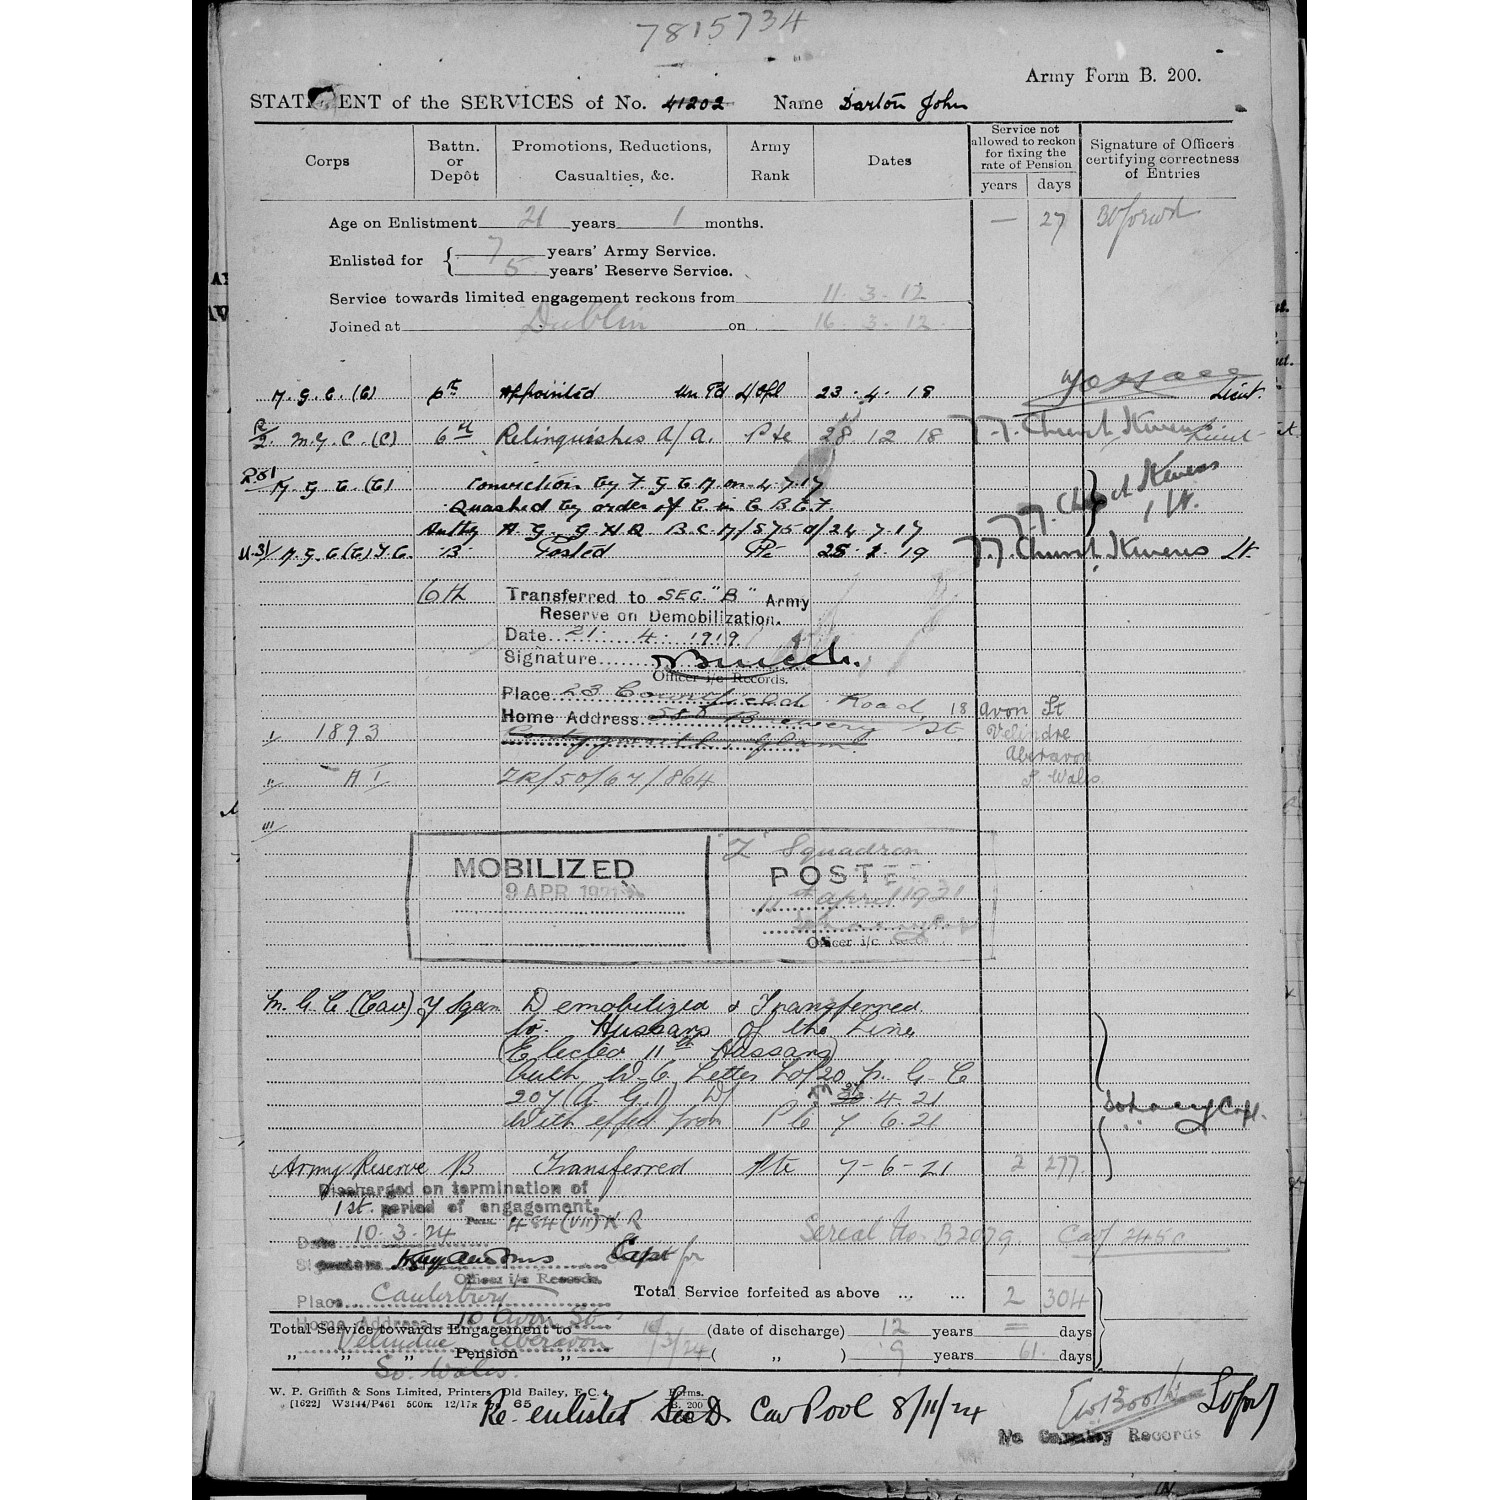 7815734
Army Form B. 200.
STATEMENT of the SERVICES of No. 41202 Name Darton John
Corps
Battn. or Depôt
Promotions, Reductions, Casualties, &c.
Army Rank
Dates
Service not allowed to reckon for fixing the rate of Pension
years days
Signature of Officers certifying correctness of Entries
Age on Enlistment 21 years 1 months. — 27
Enlisted for { 7 years' Army Service.
5 years' Reserve Service.
Service towards limited engagement reckons from 11.3.12
Joined at Dublin on 16.3.12
M.G.C.(C) 6th Appointed Un Pd L/Cpl 23.4.18 Lieut.
R/2. M.G.C.(C) 6th Relinquishes A/A. Pte 28 12 18 Church Stevens Lieut
M G C (C) Conviction by F G C M on 4.7.17
Quashed by order of C in C B.E.F. Church Stevens Lt.
Authy A.G. G H Q B.C.M/575 d/24.7.17
M.G.C(C) T.C. "B" Posted Pte 25.1.19 Church Stevens Lt.
6th Transferred to SEC. "B" Army
Reserve on Demobilization.
Date 21. 4. 1919
Signature
Officer i/c Records.
Place 23 Road, 18 Avon St
Home Address Brewery St Velindre
1/ 1893 Aberavon
" A I ZR/50/67/864 S. Wales.
"'/
MOBILIZED
9 APR 1921
"Z" Squadron
POSTED
11th April 1921
Officer i/c
M.G.C. (Cav) Y Sqdn Demobilized & Transferred
to Hussars of the Line
(Elected 11th Hussars)
Auth W.O. Letter No/20 M.G.C
207 (A.G.1) d/ 4.21
With effect from Pte 7.6.21 Capt.
Army Reserve B Transferred Pte 7-6-21 2 277
Discharged on termination of
1st. period of engagement.
Para. 484 (VII) K R
Date 10.3.24 Serial No. B2079 Cav/ 2450
Signature Capt for
Officer i/c Records.
Place Canterbury
Total Service forfeited as above ... ... 2 304
Home Address 10 Avon St
Total Service towards Engagement to 10/3/24 (date of discharge) 12 years = days
Velindre Aberavon
" " " Pension " ( " ) 9 years 61 days
So. Wales.
W. P. Griffith & Sons Limited, Printers, Old Bailey, E.C.4.
[1622] W3144/P461 500m 12/17R 65
Forms. B. 200
Re-enlisted Sec D. Cav Pool 8/11/24
i/c Cavalry Records